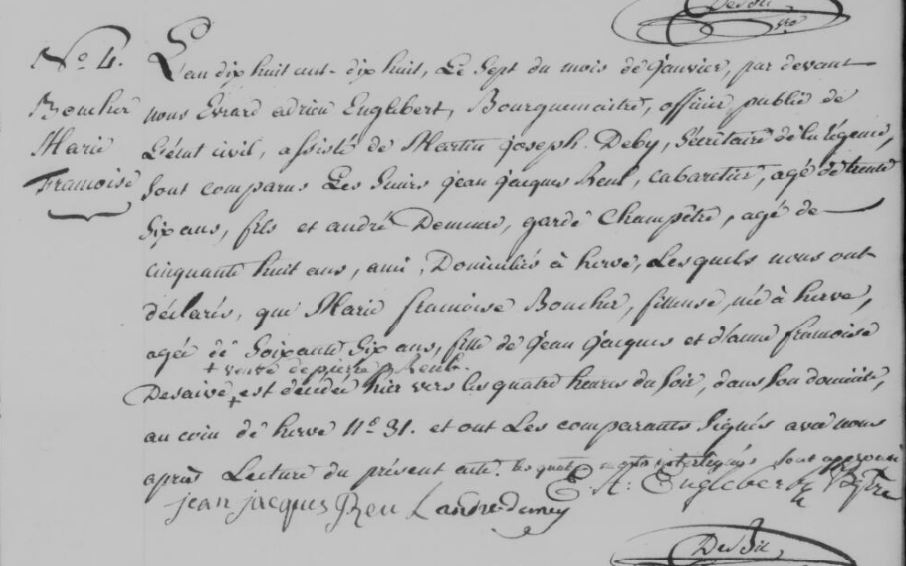 No 4.
Boucher
Marie
Françoise
L'an dix huit cent dix huit, Le Sept du mois de Janvier, par devant
nous Evrard adrien Englebert, Bourguemaitre, officier public de
L'état civil, assisté de Martin Joseph Deby, Sécrétaire de la régence,
Sont comparus Les Sieurs Jean Jacques Reul, cabaretier, agé de trente
Six ans, fils et andré Demeuse, garde Champêtre, agé de
cinquante huit ans, ami, Domiciliés à herve, Lesquels nous ont
déclarés, que Marie françoise Boucher, fileuse, née à herve,
agée de Soixante Six ans, fille de Jean Jacques et d'anne françoise
+ veuve de pierre Reul.
Desaive + est décédée hier vers les quatre heures du Soir, dans Son domicile,
au coin de herve No 31. et ont Les comparants Signés avec nous
après Lecture du présent acte. les quatre mots interlignés Sont approuvés
E. A. Englebert
jean jacques Reul andre